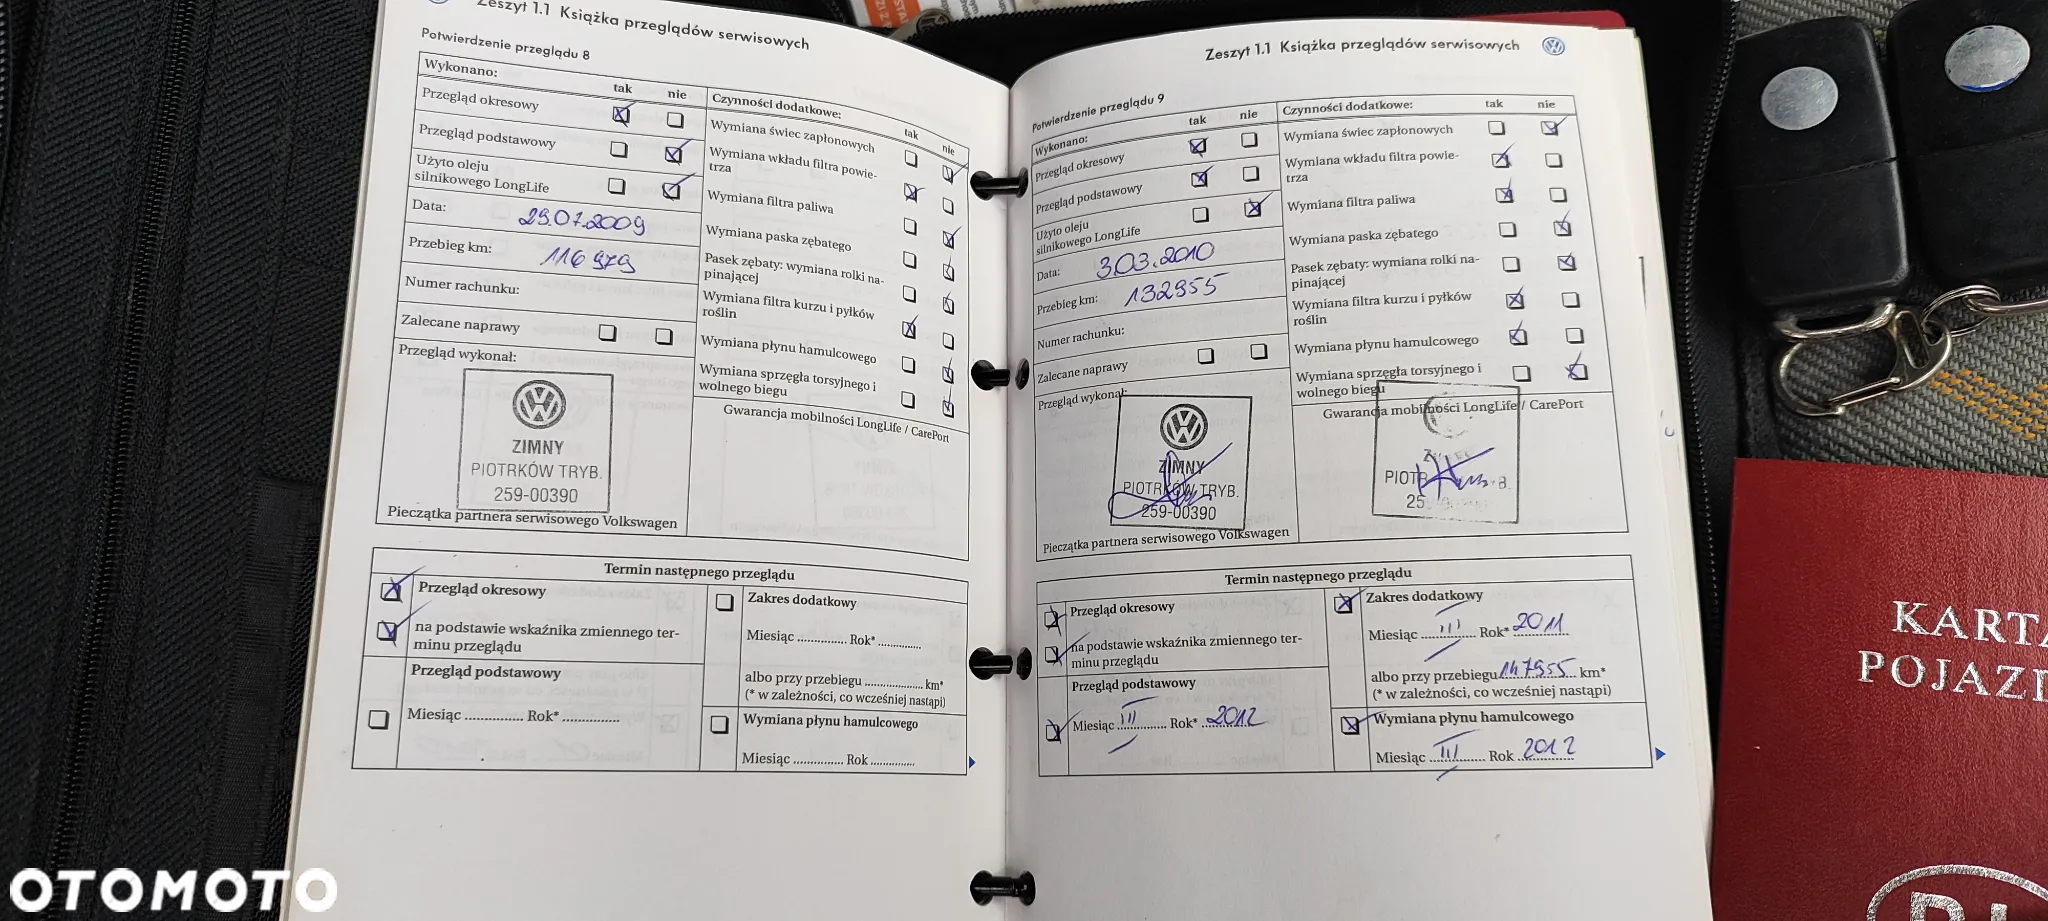 Zeszyt 1.1 Książka przeglądów serwisowych
Potwierdzenie przeglądu 8
Wykonano:
tak nie
Przegląd okresowy
Przegląd podstawowy
Użyto oleju
silnikowego LongLife
Data: 29.07.2009
Przebieg km: 116 979
Numer rachunku:
Zalecane naprawy
Przegląd wykonał:
ZIMNY
PIOTRKÓW TRYB.
259-00390
Pieczątka partnera serwisowego Volkswagen
Czynności dodatkowe:
tak nie
Wymiana świec zapłonowych
Wymiana wkładu filtra powie-
trza
Wymiana filtra paliwa
Wymiana paska zębatego
Pasek zębaty: wymiana rolki na-
pinającej
Wymiana filtra kurzu i pyłków
roślin
Wymiana płynu hamulcowego
Wymiana sprzęgła torsyjnego i
wolnego biegu
Gwarancja mobilności LongLife / CarePort
Termin następnego przeglądu
Przegląd okresowy
na podstawie wskaźnika zmiennego ter-
minu przeglądu
Przegląd podstawowy
Miesiąc ............... Rok* ...............
Zakres dodatkowy
Miesiąc ............... Rok* ...............
albo przy przebiegu .................... km*
(* w zależności, co wcześniej nastąpi)
Wymiana płynu hamulcowego
Miesiąc ............... Rok ...............
Zeszyt 1.1 Książka przeglądów serwisowych
Potwierdzenie przeglądu 9
Wykonano:
tak nie
Przegląd okresowy
Przegląd podstawowy
Użyto oleju
silnikowego LongLife
Data: 3.03.2010
Przebieg km: 132955
Numer rachunku:
Zalecane naprawy
Przegląd wykonał:
ZIMNY
PIOTRKÓW TRYB.
259-00390
Pieczątka partnera serwisowego Volkswagen
Czynności dodatkowe:
tak nie
Wymiana świec zapłonowych
Wymiana wkładu filtra powie-
trza
Wymiana filtra paliwa
Wymiana paska zębatego
Pasek zębaty: wymiana rolki na-
pinającej
Wymiana filtra kurzu i pyłków
roślin
Wymiana płynu hamulcowego
Wymiana sprzęgła torsyjnego i
wolnego biegu
Gwarancja mobilności LongLife / CarePort
Termin następnego przeglądu
Przegląd okresowy
na podstawie wskaźnika zmiennego ter-
minu przeglądu
Przegląd podstawowy
Miesiąc III Rok* 2012
Zakres dodatkowy
Miesiąc III Rok* 2011
albo przy przebiegu 147955 km*
(* w zależności, co wcześniej nastąpi)
Wymiana płynu hamulcowego
Miesiąc III Rok 2012
KARTA
POJAZD
OTOMOTO